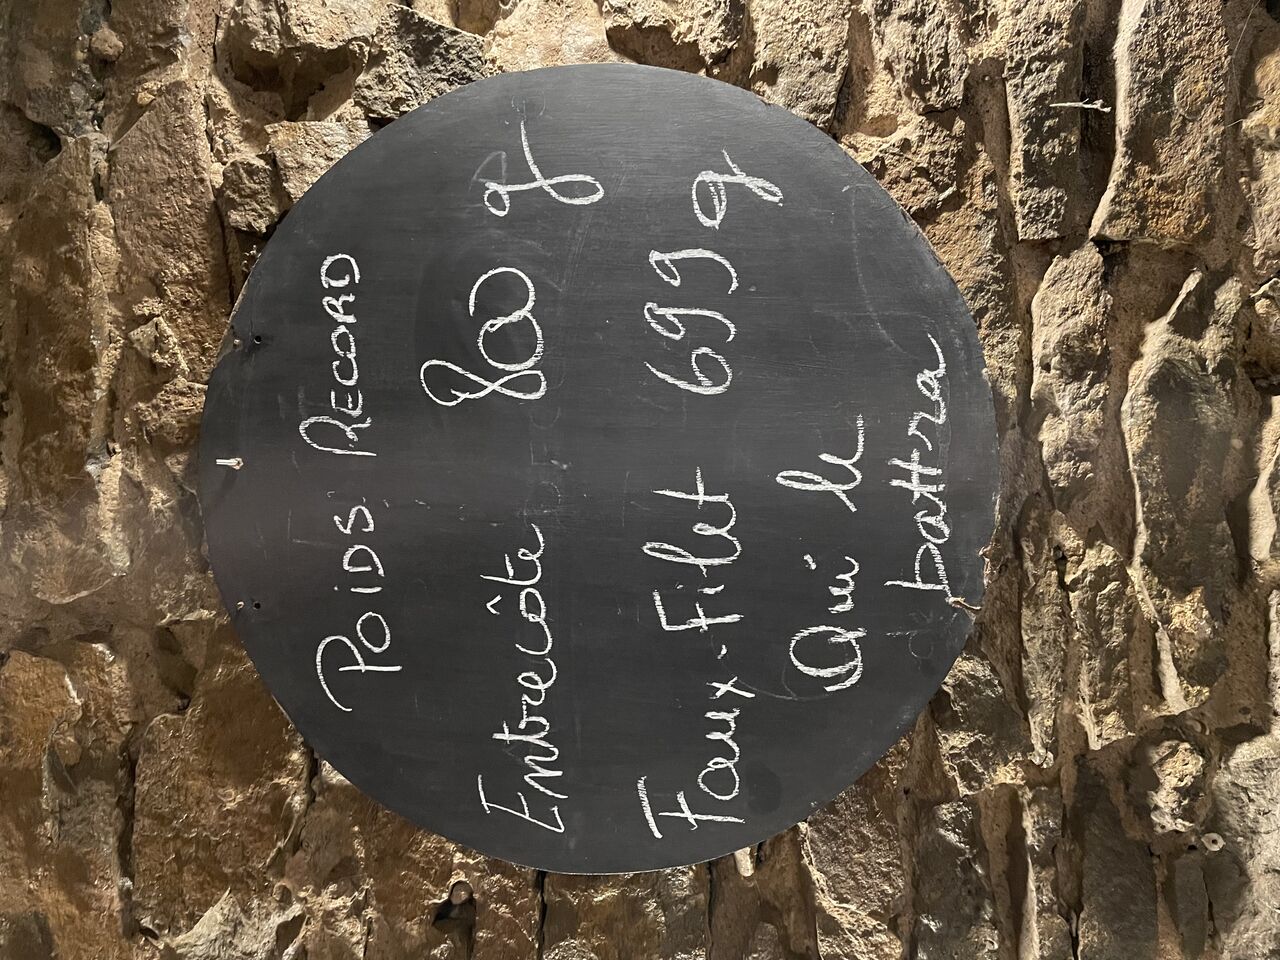 POIDS RECORD
Entrecôte 800 g
Faux-Filet 699 g
Qui le
battra